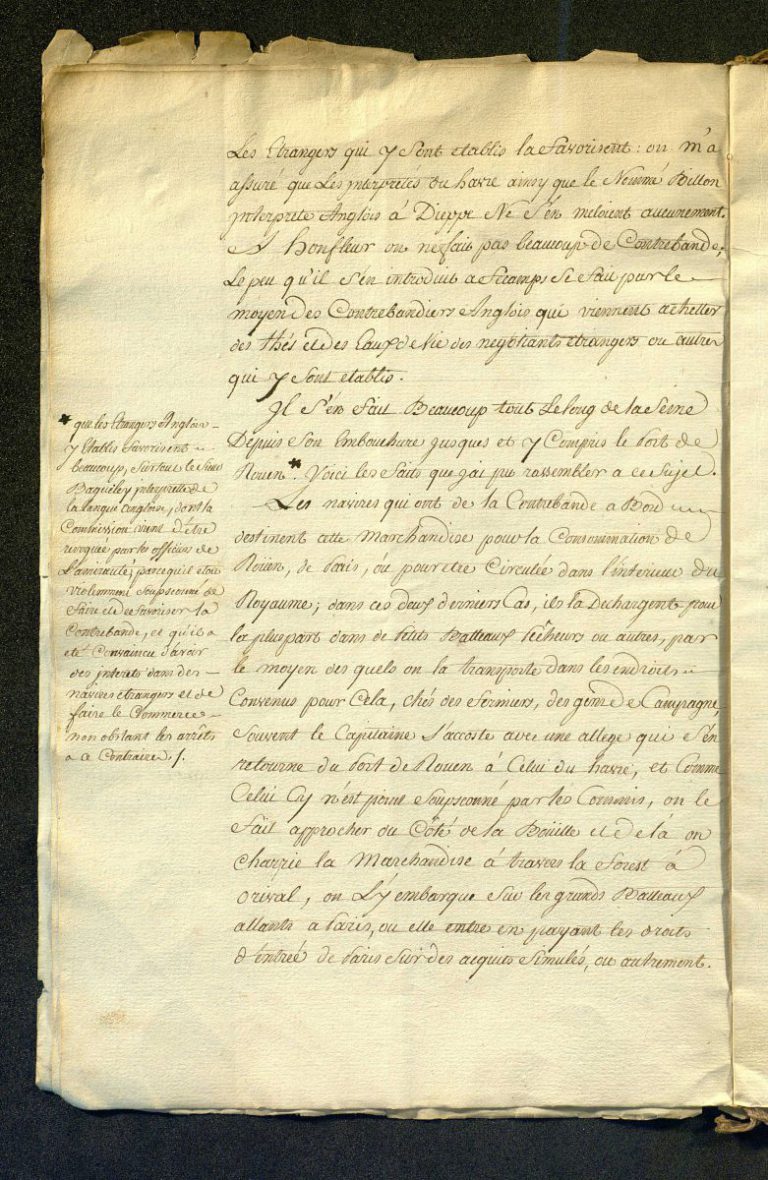 Les Etrangers qui y sont etablis la favorisent : on m'a
assuré que Les jnterpretes du havre ainsy que le Nommé Billon
jnterprete Anglois à Dieppe Ne s'en meloient aucunement.
A honfleur on ne fait pas beaucoup de Contrebande;
Le peu qu'il s'en introduit a fecamps se fait par le
moyen des Contrebandiers Anglois qui viennent achetter
des thés et des Eaux de Vie des negotiants etrangers ou autres
qui y sont etablis.
Jl s'en fait Beaucoup tout Le long de la Seine
Depuis son Embouchure jusques et y Compris le Port de
Rouen*. Voici les faits que j'ai pu rassembler a ce Sujet.
Les navires qui ont de la Contrebande a Bord
destinent cette Marchandise pour la Consommation de
Roüen, de Paris, ou pour etre Circulée dans l'interieur du
Royaume; dans ces deux derniers Cas, ils la Dechargent pour
la pluspart dans de Petits Batteaux Pêcheurs ou autres, par
le moyen des quels on la transporte dans les endroits
Convenus pour Cela, chés des fermiers, des gens de Campagne,
souvent le Capitaine s'accoste avec une allege qui s'en
retourne du Port de Rouen à Celui du havre, et Comme
Celui Cy n'est point soupsconné par les Commis, on le
fait approcher du Côté de la Boüille et de là on
charrie la Marchandise à travers la forest à
orival, on L'y embarque sur les grands Batteaux
allants a Paris, ou elle entre en payant les droits
d'entrée de Paris sur des acquits simulés, ou autrement.
* que les Etrangers Anglois
y Etablis favorisent
beaucoup, surtout le Sieur
jnterprette de
la langue angloise, dont la
Commission vient d'être
revoquée par les officiers de
L'amirauté; parce qu'il etoit
violemment soupsconné de
faire et de favoriser la
Contrebande, et qu'il a
eté Convaincu d'avoir
des jnterets dans des
navires etrangers et de
faire le Commerce
non obstant les arrêts
a ce Contraire ./.